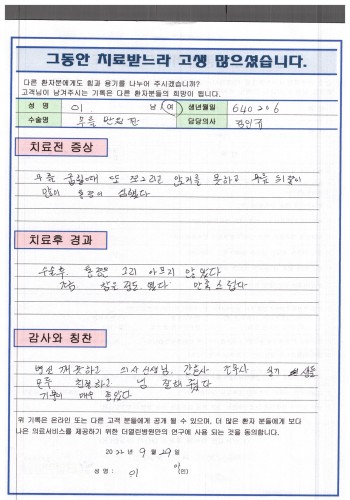 그동안 치료받느라 고생 많으셨습니다.
다른 환자분에게도 힘과 용기를 나누어 주시겠습니까?
고객님이 남겨주시는 기록은 다른 환자분들의 희망이 됩니다.
성 명 이. 남 여 생년월일 640206
수술명 무릎 담당의사
치료전 증상
무릎 굽힐때 또 쪼그리고 앉거를 못하고 무릎 뒤쪽이
많이 통증이 심했다
치료후 경과
수술후 통증은 그리 아프지 않았다
만족스럽다
감사와 칭찬
병원 깨끗하고 의사선생님, 간호사
모두 친절하고 넘 잘해 주었다
기분이 매우 좋았다
위 기록은 온라인 또는 다른 고객 분들에게 공개 될 수 있으며, 더 많은 환자 분들에게 보다
나은 의료서비스를 제공하기 위한 더열린병원만의 연구에 사용 되는 것을 동의합니다.
2022년 9월 29일
성 명 : 이 (인)